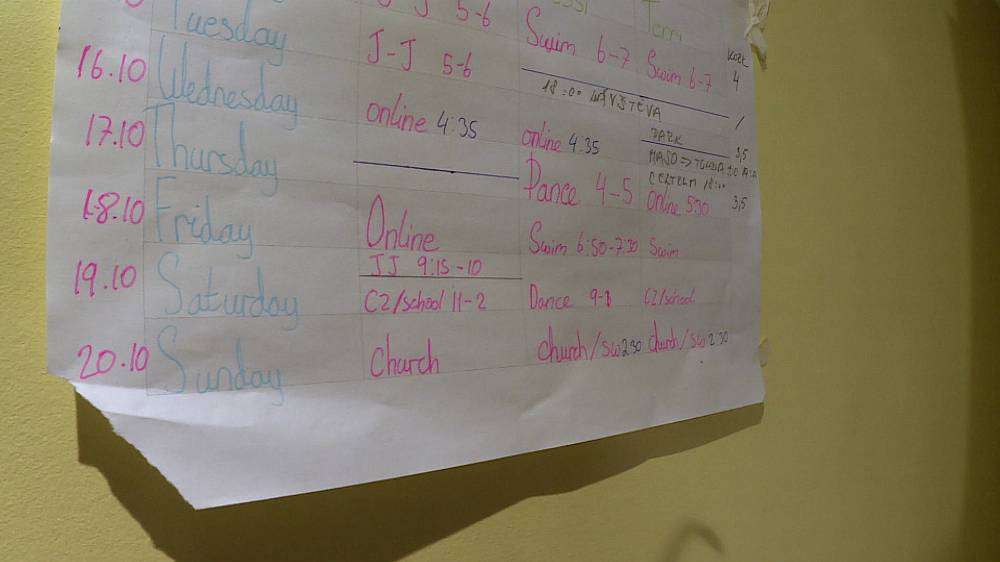 Tuesday J-J 5-6 Terri
16.10 Wednesday J-J 5-6 Swim 6-7 Swim 6-7 4
18:00 NÁVŠTEVA
17.10 Thursday online 4:35 online 4:35 3,5
18.10 Friday Online Dance 4-5 online 5:30 3,5
Swim 6:50-7:30 Swim
19.10 Saturday JJ 9:15-10
CZ/school 11-2 Dance 9-1 CZ/school
20.10 Sunday Church church/sw 2:30 church/sw 2:30